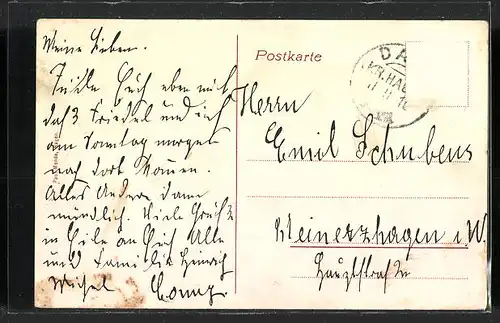 Meine Lieben.
Teile Euch eben mit
daß Friedel und ich
am Sonntag morgen
nach dort kommen.
Alles Andere dann
mündlich. Viele Grüße
in Eile an Euch Alle
und Familie Heinrich
Michel
Postkarte
Herrn
Emil
Meinerzhagen i. W.
Hauptstraße